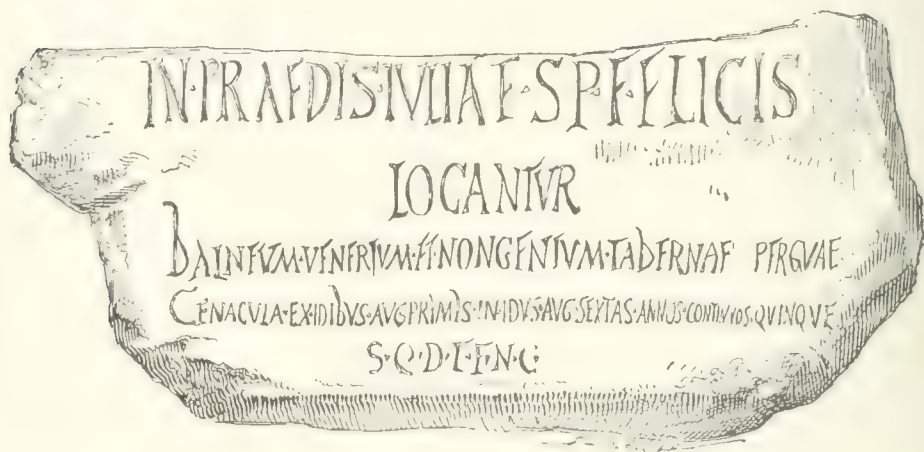 IN·PRAEDIS·IVLIAE·SP·F·FELICIS
LOCANTVR
BALNEVM·VENERIVM·ET·NONGENTVM·TABERNAE PERGVAE
CENACVLA·EX·IDIBVS·AVG·PRIMIS·IN·IDVS·AVG·SEXTAS·ANNOS·CONTINVOS·QVINQVE
S·Q·D·L·E·N·C·